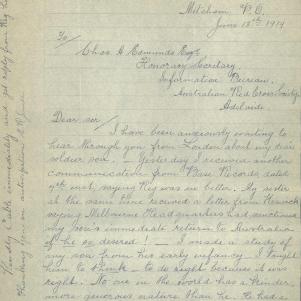 Mitcham P.O.
June 18th 1919
To/
Chas A Edmunds Esqr
Honorary Secretary
Information Bureau
Australian Red Cross Society
Adelaide
Dear sir/
I have been anxiously waiting to
hear through you from London about my dear
soldier son. — Yesterday I received another
communication from Base Records, dated
9th inst, saying Reg was no better. My sister
at the same time received a letter from
saying Melbourne Headquarters had sanctioned
my son's immediate return to Australia
if he so desired! — I made a study of
my son from his early infancy. I taught
him to think — to do right because it was
right. No one in the world has a kinder
more generous nature than he. He had a
Kindly cable immediately and get reply from
Thanking you in anticipation